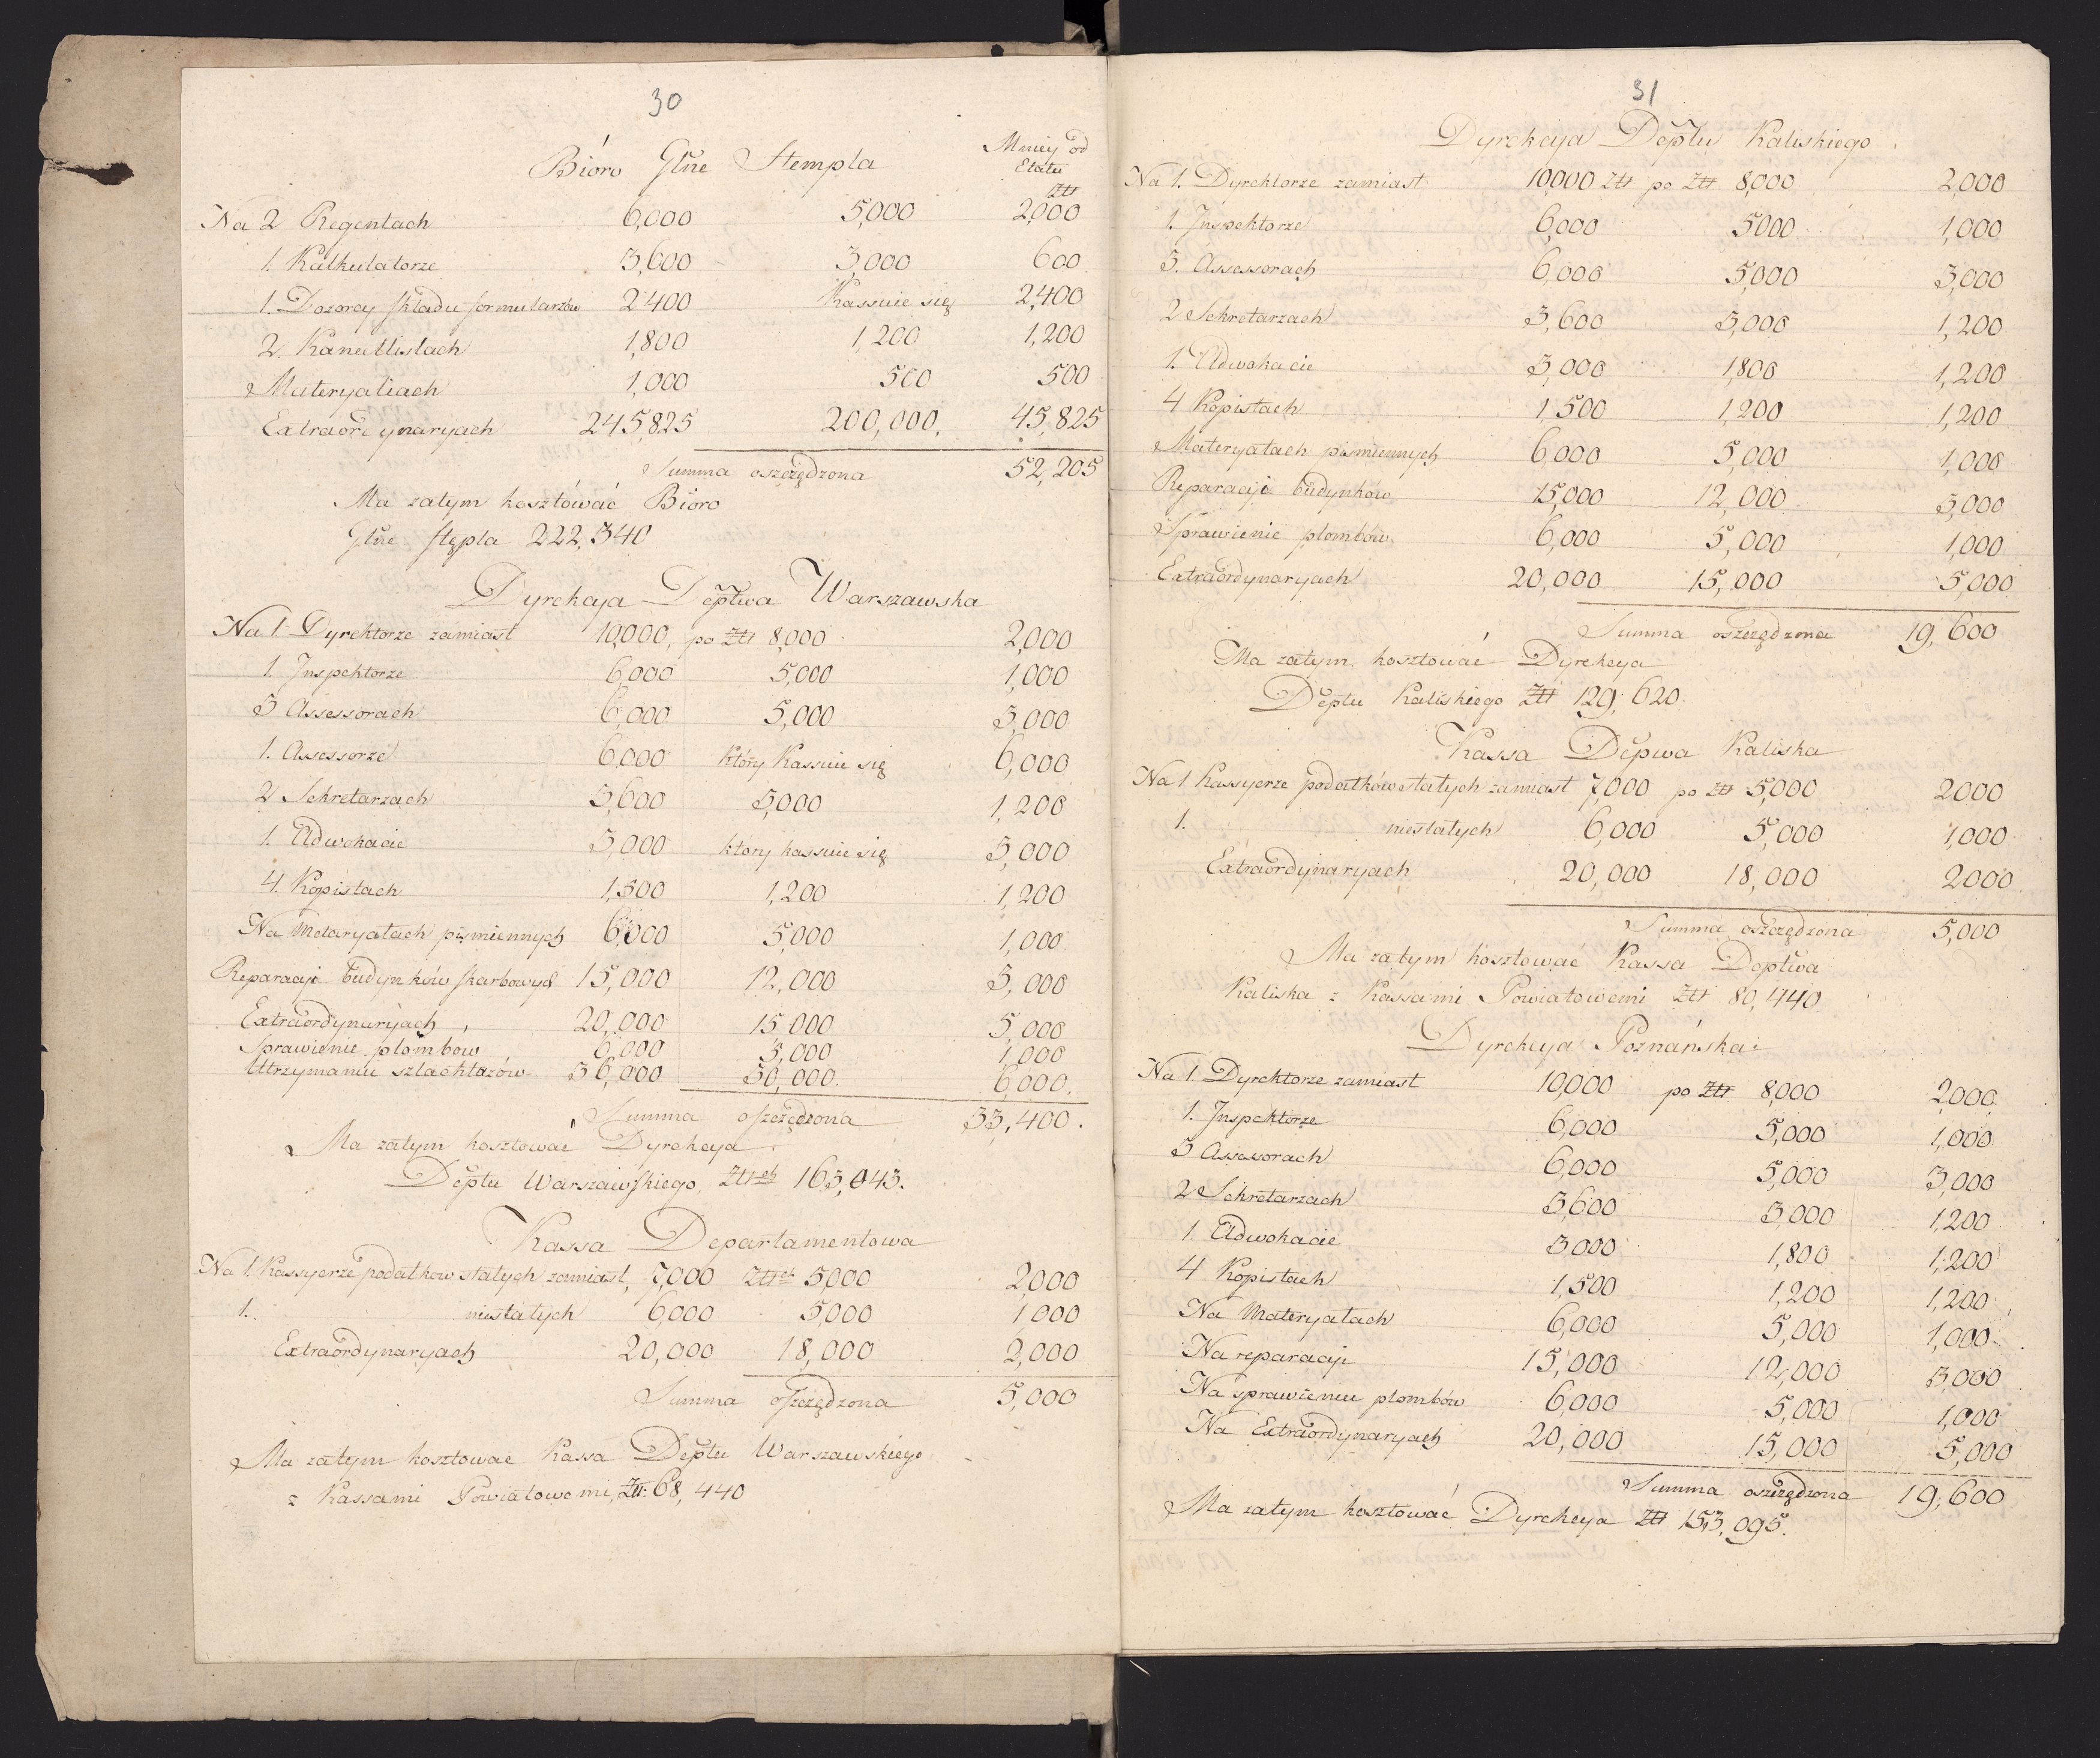 30
Bióro Głne Stempla Mniey od
Etatu
Złt
Na 2 Regentach 6,000 5,000 2,000
1. Kalkulatorze 3,600 3,000 600
1. Dozorcy składu formularzów 2400 Kassuie się 2,400
2. Kancellistach 1,800 1,200 1,200
Materyaliach 1,000 500 500
Extraordynaryach 245,825 200,000. 45,825
Summa oszczędzona 52,205
Ma zatym kosztować Bióro
Głne stępla 222,340
Dyrekcya Deptwa Warszawska
Na 1 Dyrektorze zamiast 10,000, po Złt 8,000 2,000
1. Inspektorze 6,000 5,000 1,000
3 Assessorach 6,000 5,000 3,000
1. Assessorze 6,000 który Kassuie się 6,000
2 Sekretarzach 3,600 3,000 1,200
1. Adwokacie 3,000 który kassuie się 3,000
4. Kopistach 1,500 1,200 1,200
Na Materyałach piśmiennych 6,000 5,000 1,000
Reparacji budynków skarbowych 15,000 12,000 3,000
Extraordynaryach 20,000 15,000 5,000
Sprawienie plombow 6,000 5,000 1,000
Utrzymaniu szlachtuzów 36,000 30,000. 6,000.
Summa oszczędzona 33,400.
Ma zatym kosztować Dyrekcya
Deptu Warszawskiego Złtch 163,043.
Kassa Departamentowa
Na 1. Kassyerze podatkow stałych zamiast, 7,000 Złtch 5,000 2,000
1. niestałych 6,000 5,000 1,000
Extraordynaryach 20,000 18,000 2,000
Summa oszczędzona 5,000
Ma zatym kosztowac Kassa Deptu Warszawskiego
z Kassami Powiatowemi, Złt. 68,440
31
Dyrekcya Deptu Kaliskiego.
Na 1. Dyrektorze zamiast 10,000 Złt po Złt 8,000 2,000
1. Inspektorze 6,000 5000 1,000
3. Assessorach 6,000 5,000 3,000
2 Sekretarzach 3,600 3,000 1,200
1. Adwokacie 3,000 1,800 1,200
4 Kopistach 1,500 1,200 1,200
Materyałach piśmiennych 6,000 5,000 1,000
Reparacji budynków 15,000 12,000 3,000
Sprawienie plombów 6,000 5,000 1,000
Extraordynaryach 20,000 15,000 5,000
Summa oszczędzona 19,600
Ma zatym kosztować Dyrekcya
Deptu Kaliskiego Złt 129,620.
Kassa Depwa Kaliska
Na 1 Kassyerze podatków stałych zamiast 7,000 po Złt 5,000 2000
1. niestałych 6,000 5,000 1,000
Extraordynaryach 20,000 18,000 2000
Summa oszczędzona 5,000
Ma zatym kosztować Kassa Deptwa
Kaliska z Kassami Powiatowemi Złt 80,440
Dyrekcya Poznańska
Na 1. Dyrektorze zamiast 10,000 po Złt 8,000 2,000
1. Inspektorze 6,000 5,000 1,000
3 Assessorach 6,000 5,000 3,000
2 Sekretarzach 3,600 3,000 1,200
1. Adwokacie 3,000 1,800 1,200
4 Kopistach 1,500 1,200 1,200
Na Materyałach 6,000 5,000 1,000
Na reparacji 15,000 12,000 3,000
Na sprawieniu plombów 6,000 5,000 1,000
Na Extraordynaryach 20,000 15,000 5,000
Summa oszczędzona 19,600
Ma zatym kosztować Dyrekcya Złt 153,095.